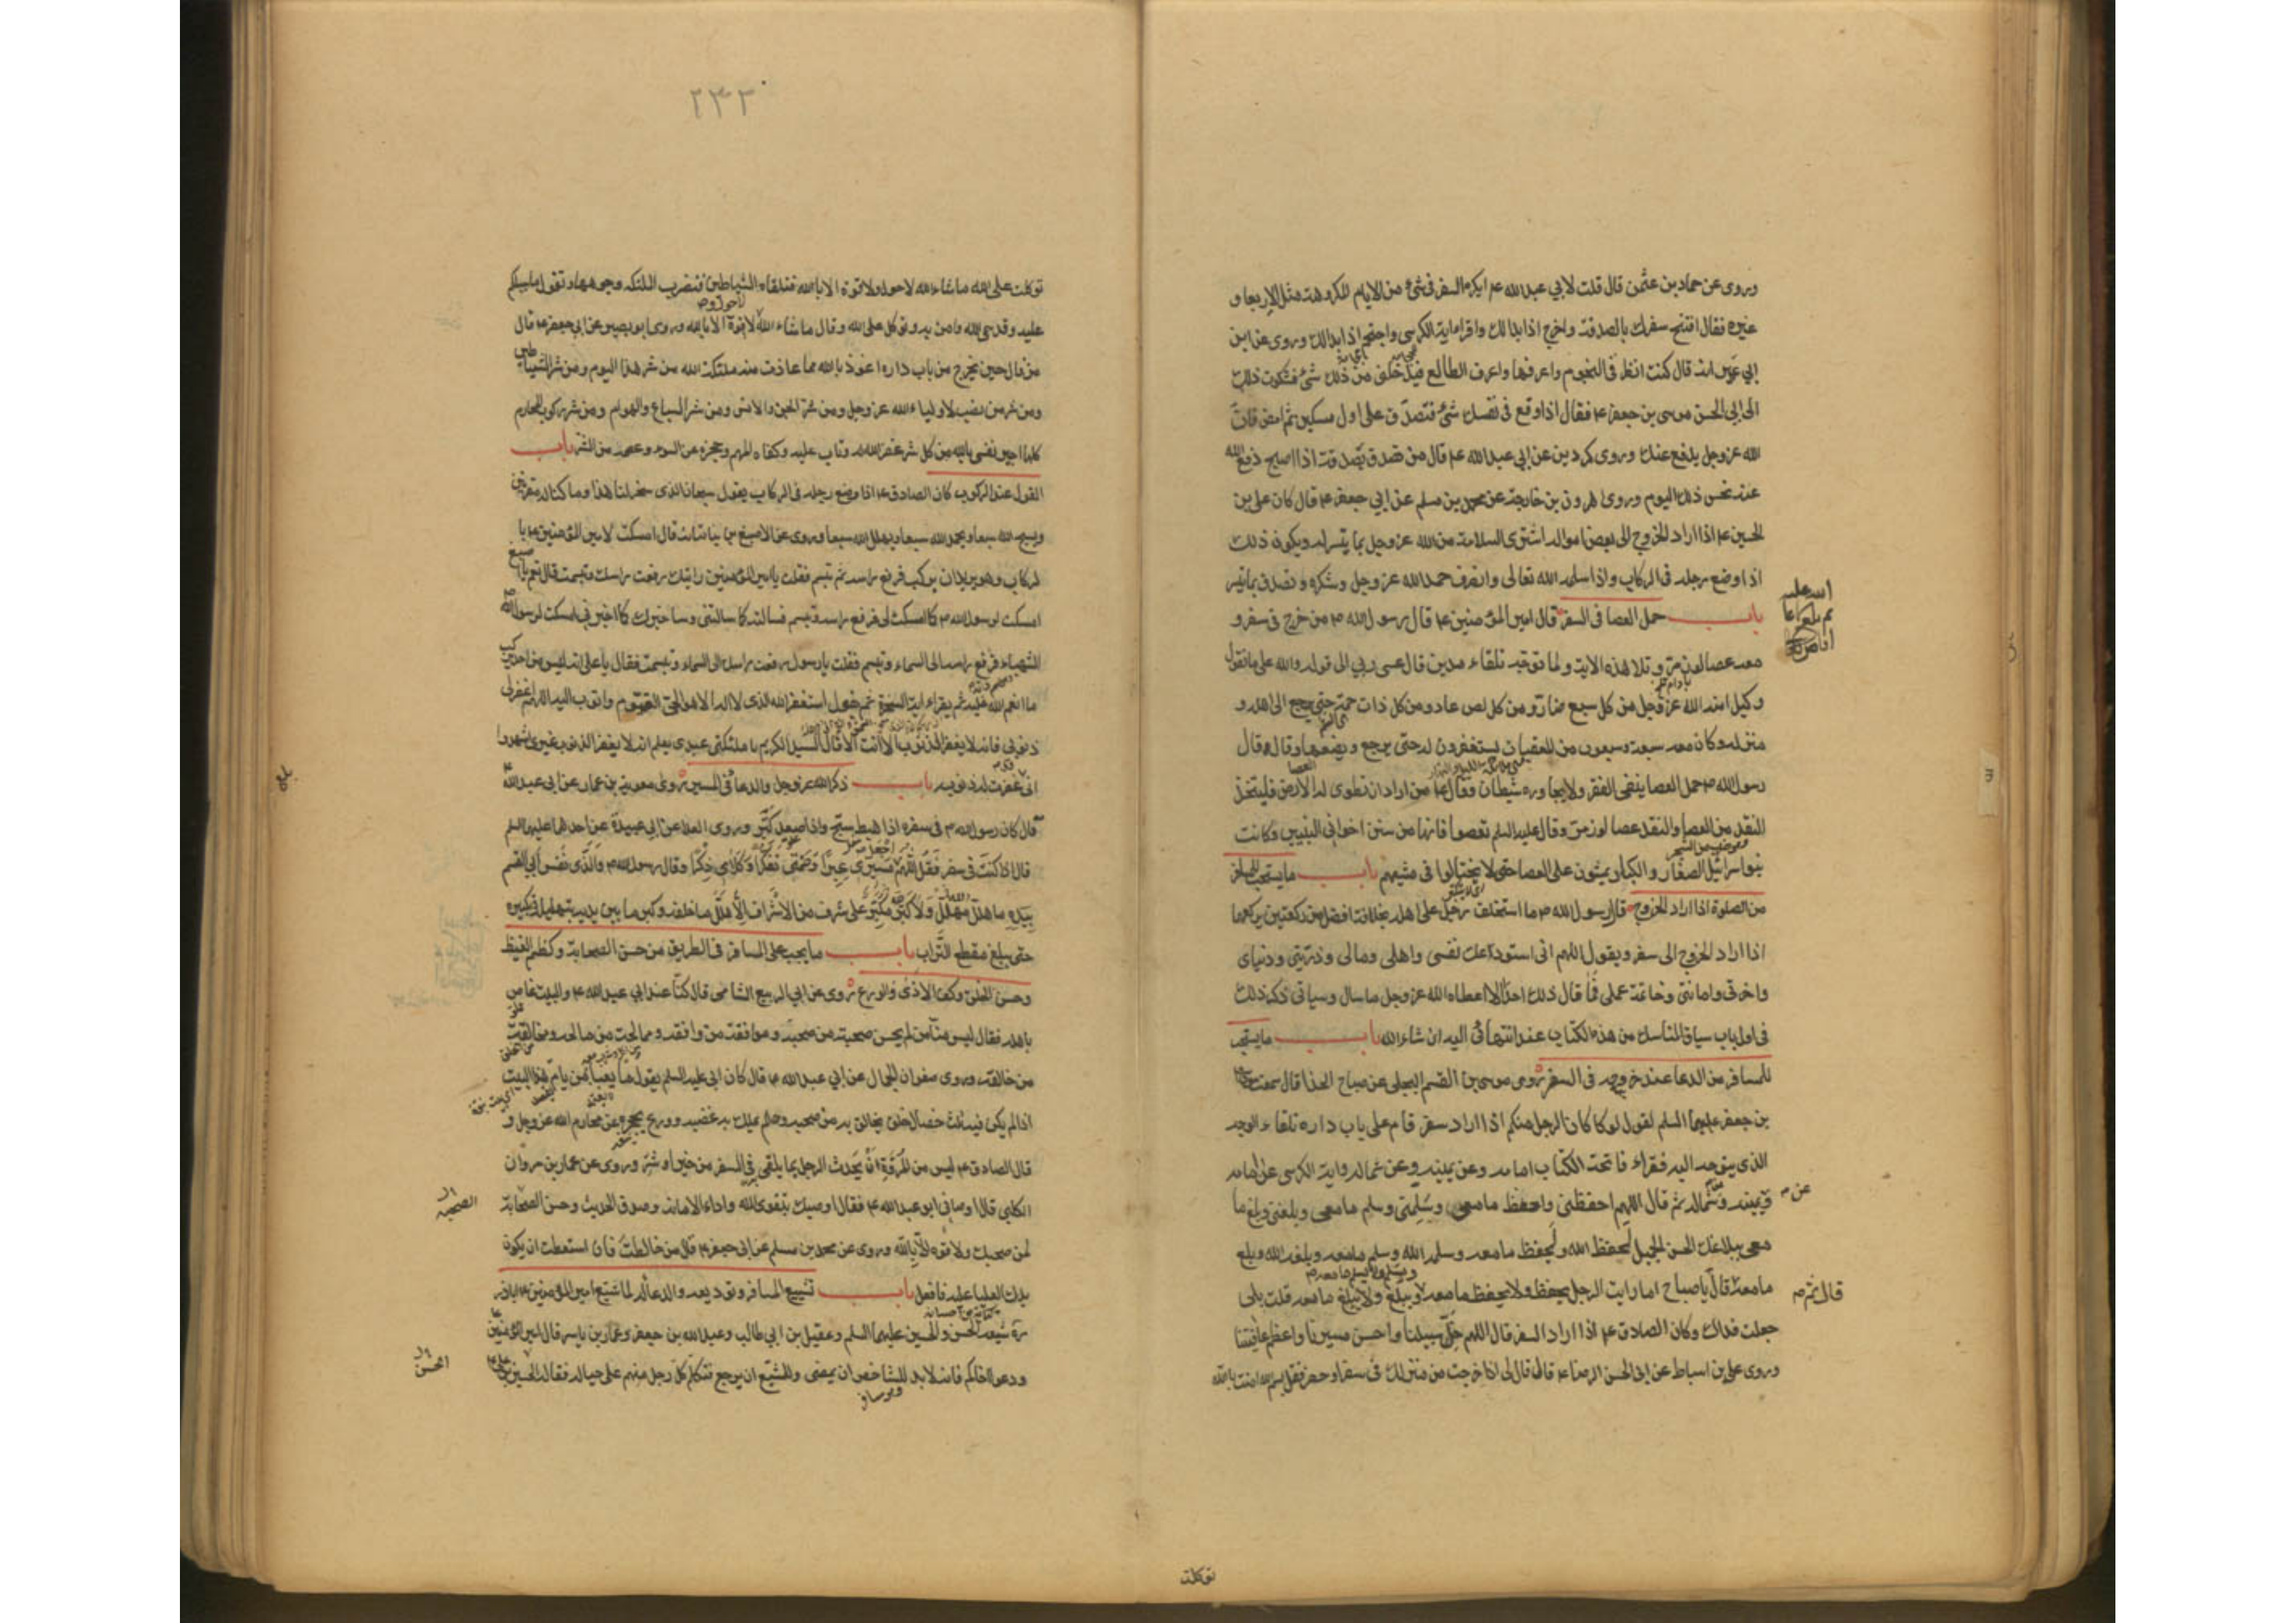 وروى عن حماد بن عثمن قال قلت لابي عبد الله ع ايكره السفر في شئ من الايام المكروهة مثل الاربعا و
غيره فقال افتتح سفرك بالصدقة واخرج اذا بدا لك واقرا اية الكرسي واحتجم اذا بدا لك وروى عن ابن
ابي عمير انه قال كنت انظر في النجوم واعرفها واعرف الطالع فيدخلني من ذلك شئ فشكوت ذلك
الى ابي الحسن موسى بن جعفر ع فقال اذا وقع في نفسك شئ فتصدق على اول مسكين ثم امض فان
الله عز وجل يدفع عنك وروى كردين عن ابي عبد الله ع قال من تصدق بصدقة اذا اصبح دفع الله
عنه نحس ذلك اليوم وروى هرون بن خارجة عن محمد بن مسلم عن ابي جعفر ع قال كان علي بن
الحسين ع اذا اراد الخروج الى بعض امواله اشترى السلامة من الله عز وجل بما تيسر له ويكون ذلك
اذا وضع رجله في الركاب واذا سلمه الله تعالى وانصرف حمد الله عز وجل وشكره وتصدق بما تيسر
باب حمل العصا في السفر قال امير المؤمنين ع قال رسول الله ص من خرج في سفر و
معه عصا لوز مر وتلا هذه الاية ولما توجه تلقاء مدين قال عسى ربي الى قوله والله على ما نقول
وكيل امنه الله عز وجل من كل سبع ضار ومن كل لص عاد ومن كل ذات حمة حتى يرجع الى اهله و
منزله وكان معه سبعة وسبعون من المعقبات يستغفرون له حتى يرجع ويضعها وقال قال
رسول الله ص حمل العصا ينفي الفقر ولا يجاوره شيطان وقال ع من اراد ان تطوى له الارض فليتخذ
النقد من العصا والنقد عصا لوز مر وقال عليه السلم تعصوا فانها من سنن اخواني النبيين وكانت
بنو اسرائيل الصغار والكبار يمشون على العصا حتى لا يختالوا في مشيهم باب ما يستحب للمسافر
من الصلوة اذا اراد الخروج قال رسول الله ص ما استخلف رجل على اهله بخلافة افضل من ركعتين يركعهما
اذا اراد الخروج الى سفر ويقول اللهم اني استودعك نفسي واهلي ومالي وذريتي ودنياي
واخرتي وامانتي وخاتمة عملي فما قال ذلك احد الا اعطاه الله عز وجل ما سال وسياتي ذكر ذلك
في اول باب سياق المناسك من هذا الكتاب عند انتهائي اليه ان شاء الله باب ما يستحب
للمسافر من الدعا عند خروجه في السفر روى موسى بن القسم البجلي عن صباح الحذا قال سمعت موسى
بن جعفر عليهما السلم يقول لو كان الرجل منكم اذا اراد سفر قام على باب داره تلقاء الوجه
الذي يتوجه اليه فقراء فاتحة الكتاب امامه وعن يمينه وعن شماله واية الكرسي على امامه
عن م
ويمينه وشماله ثم قال اللهم احفظني واحفظ ما معي وسلمني وسلم ما معي وبلغني وبلغ ما
معي ببلاغك الحسن الجميل لحفظ الله ولحفظ ما معه وسلمه الله وسلم ما معه وبلغه الله وبلغ
ما معه قال يا صباح اما رايت الرجل يحفظ ولا يحفظ ما معه ويبلغ ولا يبلغ ما معه قلت بلى
قال ثم ص
جعلت فداك وكان الصادق ع اذا اراد السفر قال اللهم خل سبيلنا واحسن مسيرنا واعظم عافيتنا
وروى علي بن اسباط عن ابي الحسن الرضا ع قال قال لي اذا خرجت من منزلك في سفر او حضر فقل بسم الله امنت بالله
توكلت
٢٣٢
توكلت على الله ما شاء الله لا حول ولا قوة الا بالله فتلقاه الشياطين فتضرب الملئكة وجوهها وتقول ما سبيلكم
عليه وقد سمى الله وامن به وتوكل على الله وقال ما شاء الله لا قوة الا بالله وروى ابو بصير عن ابي جعفر ع قال
من قال حين يخرج من باب داره اعوذ بالله مما عاذت منه ملئكة الله من شر هذا اليوم ومن شر الشياطين
ومن شر من نصب لاولياء الله عز وجل ومن شر الجن والانس ومن شر السباع والهوام ومن شر ركوب المحارم
كلها اجير نفسي بالله من كل شر غفر الله له وتاب عليه وكفاه المهم وحجزه عن السوء وعصمه من الشر باب
القول عند الركوب كان الصادق ع اذا وضع رجله في الركاب يقول سبحان الذي سخر لنا هذا وما كنا له مقرنين
ويسبح الله سبعا ويحمد الله سبعا ويهلل الله سبعا وروى عن الاصبغ بن نباتة انه قال امسكت لامير المؤمنين ع با
لركاب وهو يريد ان يركب فرفع راسه ثم تبسم فقلت يا امير المؤمنين رايتك رفعت راسك وتبسمت قال نعم يا اصبغ
امسكت لرسول الله ص كما امسكت لي فرفع راسه وتبسم فسالته كما سالتني وساخبرك كما اخبرني امسكت لرسول الله ص
الشهباء فرفع راسه الى السماء وتبسم فقلت يا رسول الله رفعت راسك الى السماء وتبسمت فقال يا علي انه ليس من احد يركب
ما انعم الله عليه ثم يقراء اية السخرة ثم يقول استغفر الله الذي لا اله الا هو الحي القيوم واتوب اليه اللهم اغفر لي
ذنوبي فانه لا يغفر الذنوب الا انت الا قال السيد الكريم يا ملئكتي عبدي يعلم انه لا يغفر الذنوب غيري اشهدوا
اني غفرت له ذنوبه باب ذكر الله عز وجل والدعا في المسير روى معوية بن عمار عن ابي عبد الله ع
قال كان رسول الله ص في سفره اذا هبط سبح واذا صعد كبر وروى العلا عن ابي عبيدة عن احدهما عليهما السلم
قال اذا كنت في سفر فقل اللهم اجعل مسيري عبرا وصمتي تفكرا وكلامي ذكرا وقال رسول الله ص والذي نفس ابي القسم
بيده ما هلل مهلل ولا كبر مكبر على شرف من الاشراف الا هلل ما خلفه وكبر ما بين يديه بتهليله وتكبيره
حتى يبلغ مقطع التراب باب ما يجب على المسافر في الطريق من حسن الصحابة وكظم الغيظ
وحسن الخلق وكف الاذى والورع روى عن ابي الربيع الشامي قال كنا عند ابي عبد الله ع والبيت غاص
باهله فقال ليس منا من لم يحسن صحبة من صحبه وموافقة من وافقه وممالحة من مالحه ومخالقة
من خالقه وروى صفوان الجمال عن ابي عبد الله ع قال كان ابي عليه السلم يقول ما يعبا بمن يؤم هذا البيت
اذا لم يكن فيه ثلث خصال خلق يخالق به من صحبه وحلم يملك به غضبه وورع يحجزه عن محارم الله عز وجل و
قال الصادق ع ليس من المروة ان يحدث الرجل بما يلقى في السفر من خير او شر وروى عن عمار بن مروان
الكلبي قال اوصاني ابو عبد الله ع فقال اوصيك بتقوى الله واداء الامانة وصدق الحديث وحسن الصحابة
الصحبة
لمن صحبك ولا قوة الا بالله وروى عن محمد بن مسلم عن ابي جعفر ع قال من خالطت فان استطعت ان يكون
يدك العليا عليه فافعل باب تشييع المسافر وتوديعه والدعا له لما شيع امير المؤمنين ع اباذر
ره شيعه الحسن والحسين عليهما السلم وعقيل بن ابي طالب وعبد الله بن جعفر وعمار بن ياسر قال امير المؤمنين ع
ودعوا اخاكم فانه لا بد للشاخص ان يمضي وللمشيع ان يرجع فتكلم كل رجل منهم على حياله فقال الحسين بن علي ع
الحسن